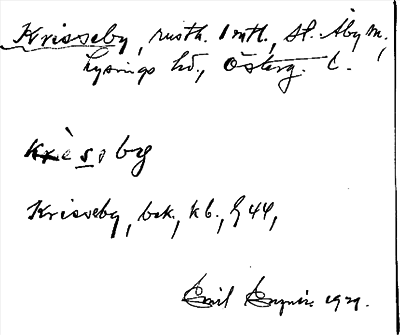 Krisseby, rusth. 1 mtl., St. Åby sn,
Lysings hd., Österg. l.
krèsby
Krisseby, bsk, kb., G 44,
Emil 1929.